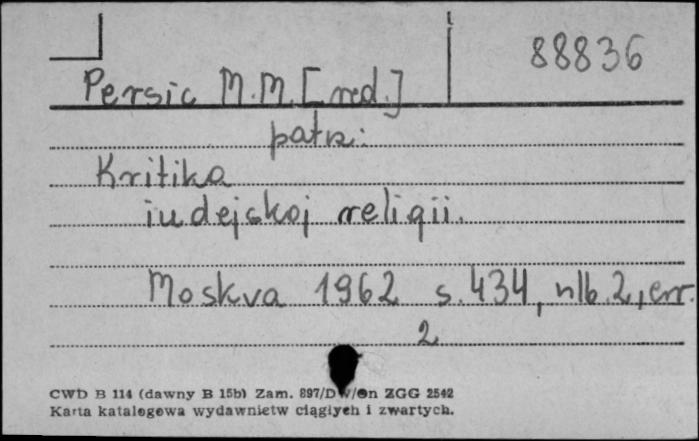 88836
Persic M.M. [red.]
patrz:
Kritika
iudejskoj religii.
Moskva 1962 s. 434, nlb. 2, err.
2
CWD B 114 (dawny B 15b) Zam. 897/DW/On ZGG 2542
Karta katalogowa wydawnictw ciągłych i zwartych.